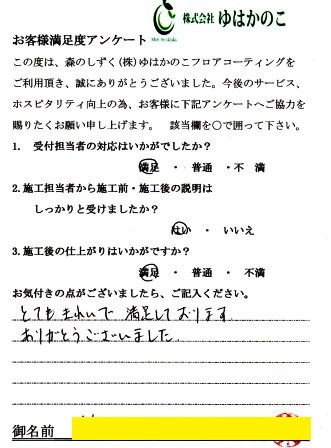 株式会社 ゆはかのこ
お客様満足度アンケート
この度は、森のしずく(株)ゆはかのこフロアコーティングを
ご利用頂き、誠にありがとうございました。今後のサービス、
ホスピタリティ向上の為、お客様に下記アンケートへご協力を
賜りたくお願い申し上げます。 該当欄を○で囲って下さい。
1. 受付担当者の対応はいかがでしたか?
満足 ・ 普通 ・不 満
2.施工担当者から施工前・施工後の説明は
しっかりと受けましたか?
はい ・ いいえ
3.施工後の仕上がりはいかがですか?
満足 ・ 普通 ・ 不満
お気付きの点がございましたら、ご記入ください。
とてもきれいで 満足しております
ありがとうございました.
御名前